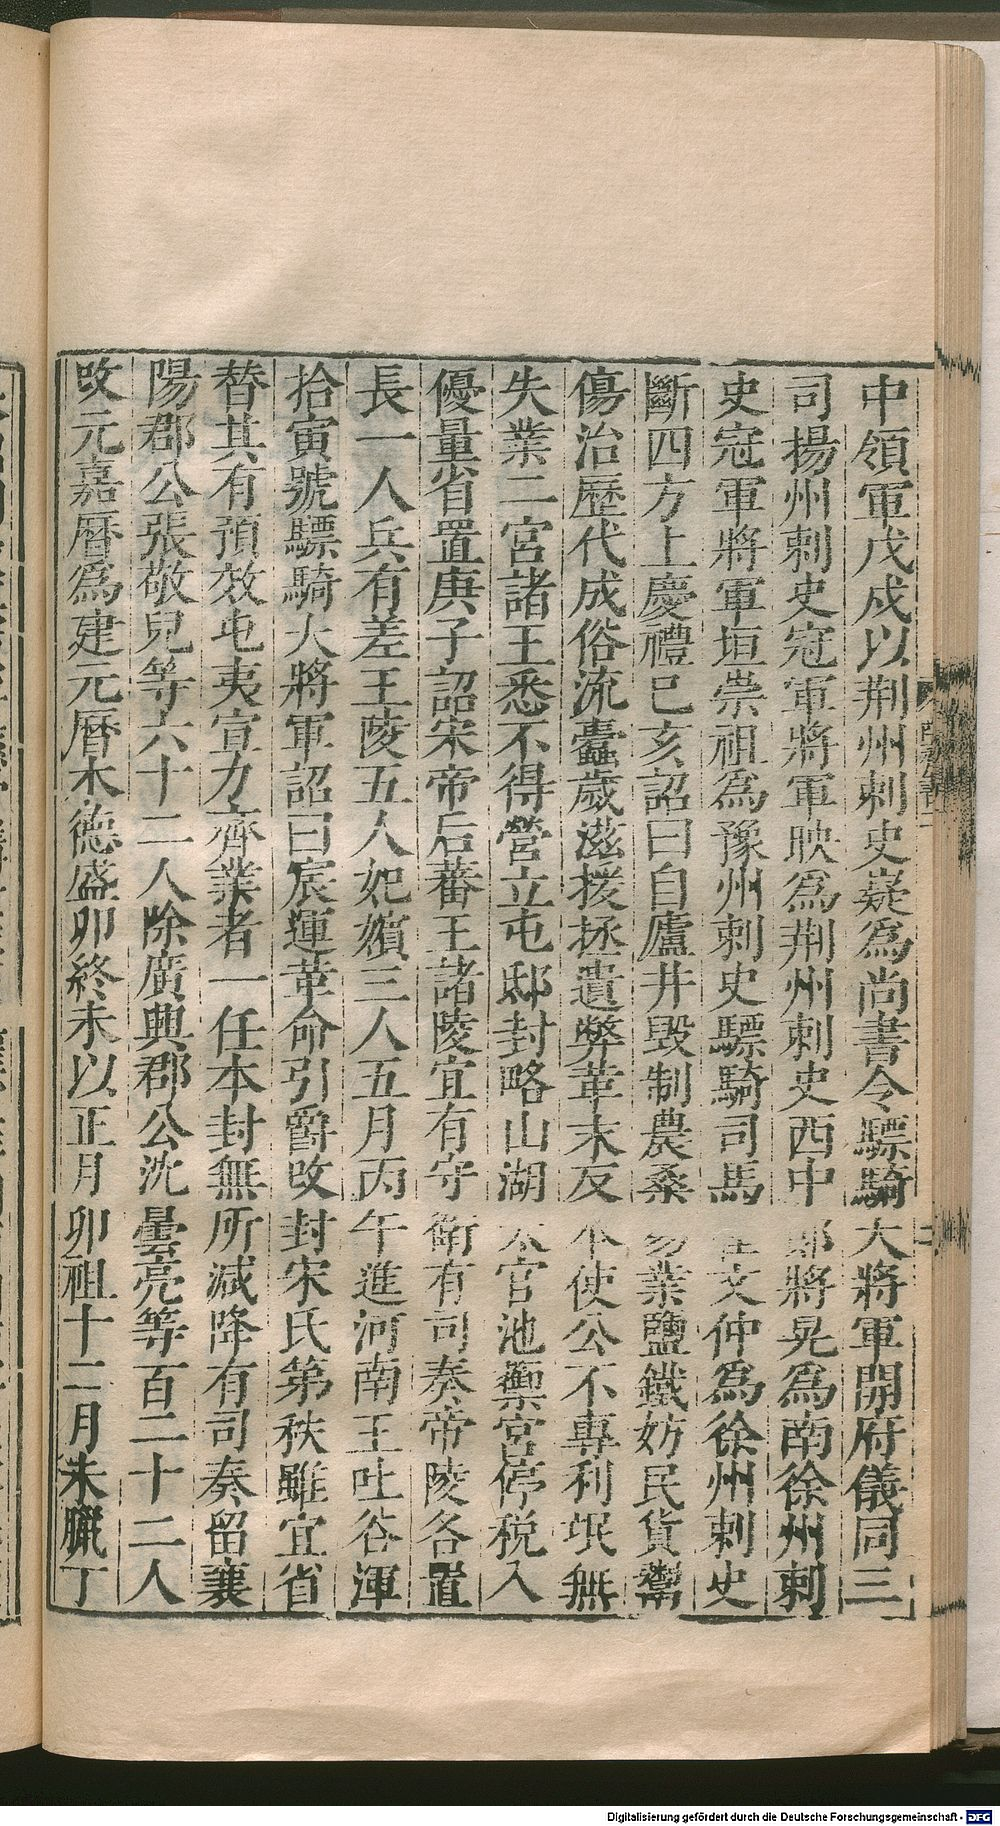 中領軍戊戍以荆州刺史嶷爲尚書令驃騎大將軍開府儀同三
司揚州刺史冠軍將軍映爲荆州刺史西中郎將晃爲南徐州刺
史冠軍將軍垣崇祖爲豫州刺史驃騎司馬崔文仲爲徐州刺史
斷四方上慶禮巳亥詔曰自廬井毀制農桑易業鹽鐵妨民貨鬻
傷治歷代成俗流蠹歲滋援拯遺弊革末反本使公不專利氓無
失業二宮諸王悉不得營立屯邸封略山湖太官池籞宮停稅入
優量省置庚子詔宋帝后蕃王諸陵宜有守衛有司奏帝陵各置
長一人兵有差王陵五人妃嬪三人五月丙午進河南王吐谷渾
拾寅號驃騎大將軍詔曰宸運革命引爵改封宋氏第秩雖宜省
替其有預效屯夷宣力齊業者一任本封無所減降有司奏留襄
陽郡公張敬兒等六十二人除廣興郡公沈曇亮等百二十二人
改元嘉曆爲建元曆木德盛卯終未以正月卯祖十二月未臘丁
Digitalisierung gefördert durch die Deutsche Forschungsgemeinschaft - DFG